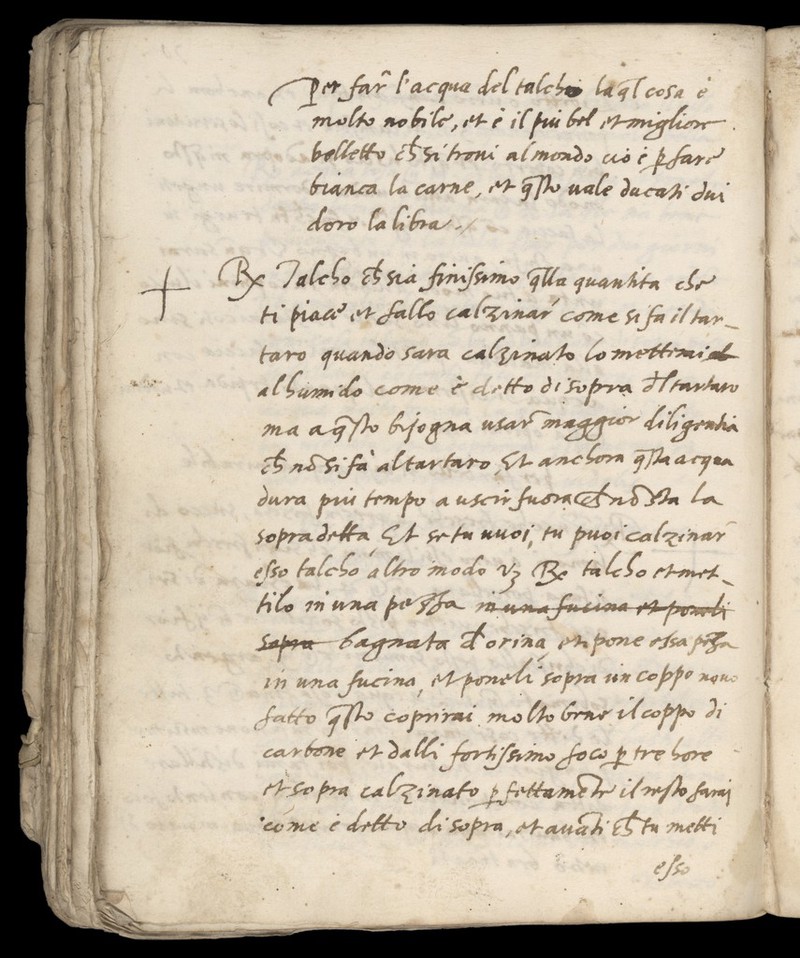 Per far̃ l'acqua del talcho laq̃l cosa è
molto nobile, et è il piu bel et migliore
belletto ch̃ si troui al mondo cio è p̱ fare
bianca la carne, et q̃sto uale ducati dui
doro la libra
℞ Talcho ch̃ sia finissimo q̃lla quantita che
ti piace et fallo calzinar̃ come si fa il tar_
taro quando sara calzinato lo metterai
al humido come è detto di sopra d̃l tartaro
ma a q̃sto bisogna usar̃ maggior diligentia
ch̃ nõ si fa al tartaro, Et anchora q̃sta acqua
dura piu tempo a uscir fuora ch̃ nõ sta la
sopradetta, Et se tu uuoi, tu puoi calzinar̃
esso talcho altro modo vz ℞ talcho et met_
tilo in una pezza in una fucina et poneli
sopra bagnata d'orina, et pone essa pezza
in una fucina, et poneli sopra un coppo nouo
fatto q̃sto coprirai molto bene il coppo di
carbone et dalli fortissimo foco p̱ tre hore
et sopra calzinato p̱fettamẽte il resto farai
come è detto di sopra, et auãti ch̃ tu metti
esso